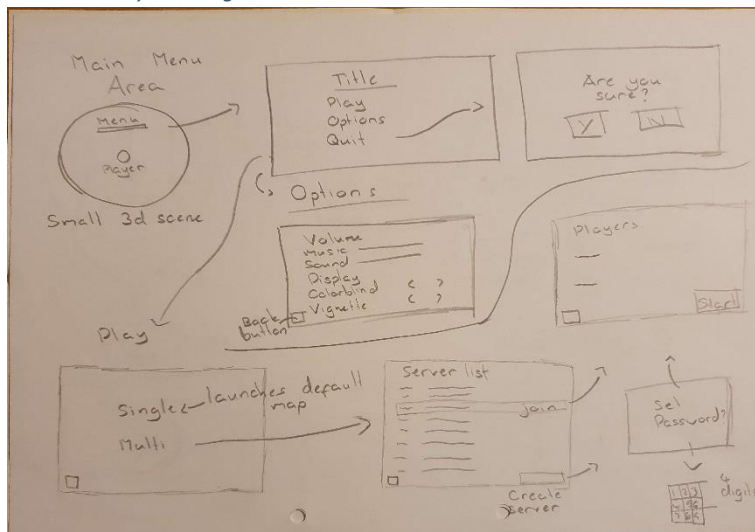 Main Menu
Area
Menu
Player
Small 3d scene
Title
Play
Options
Quit
Are you
sure?
Y
N
Options
Volume
Music
Sound
Display
Colorblind < >
Vignette < >
Back
button
Players
Start
Play
Single
launches default
map
Multi
Server list
join
Create
server
Set
Password?
4
digits
1 2 3